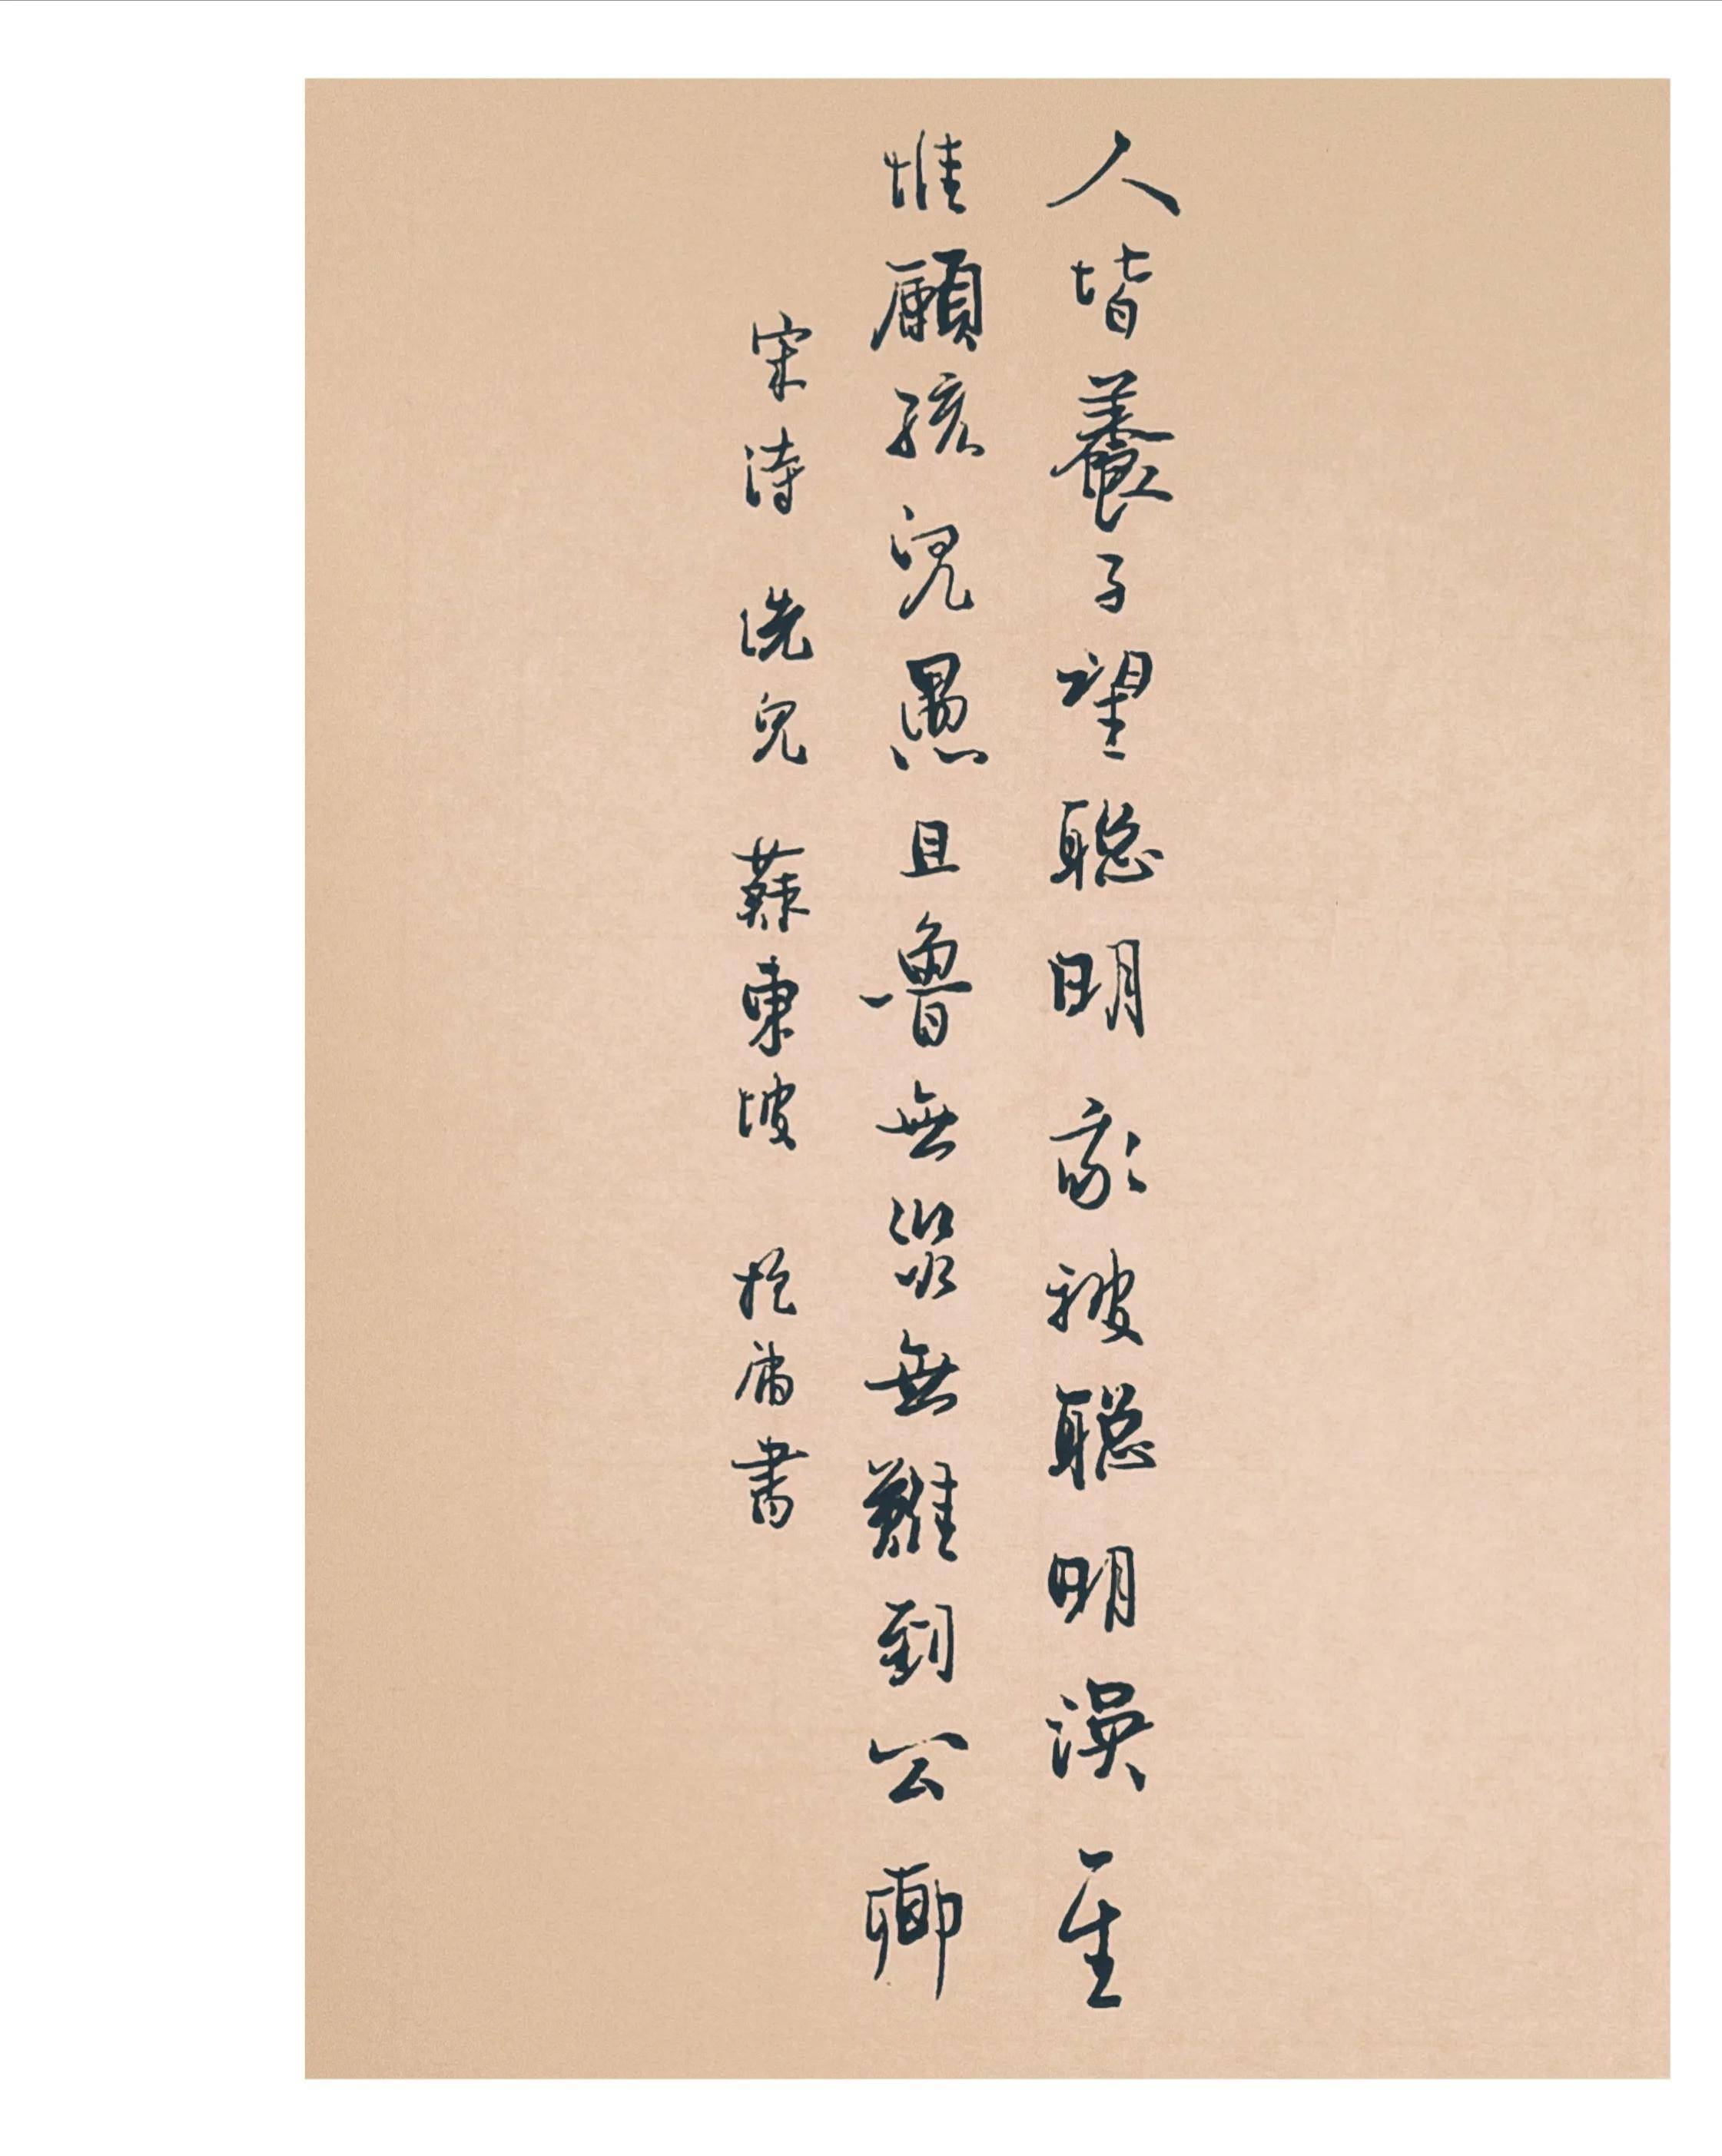 人皆養子望聪明我被聪明误一生
惟願孩兒愚且魯無災無難到公卿
宋诗 洗兒 蘇東坡 於 書